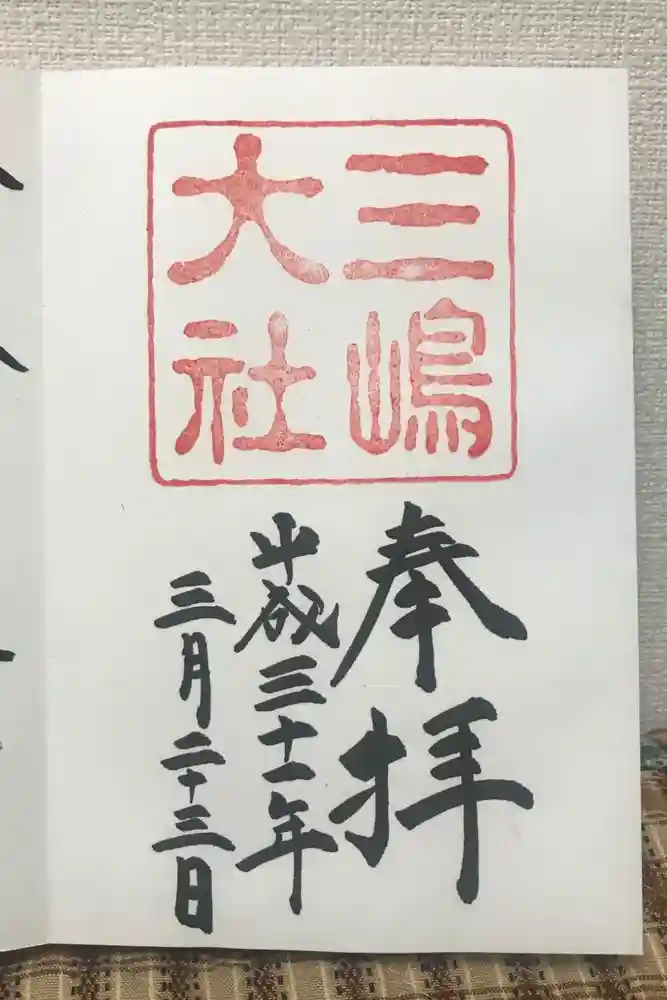 三嶋
大社
奉拝
平成三十一年
三月二十三日